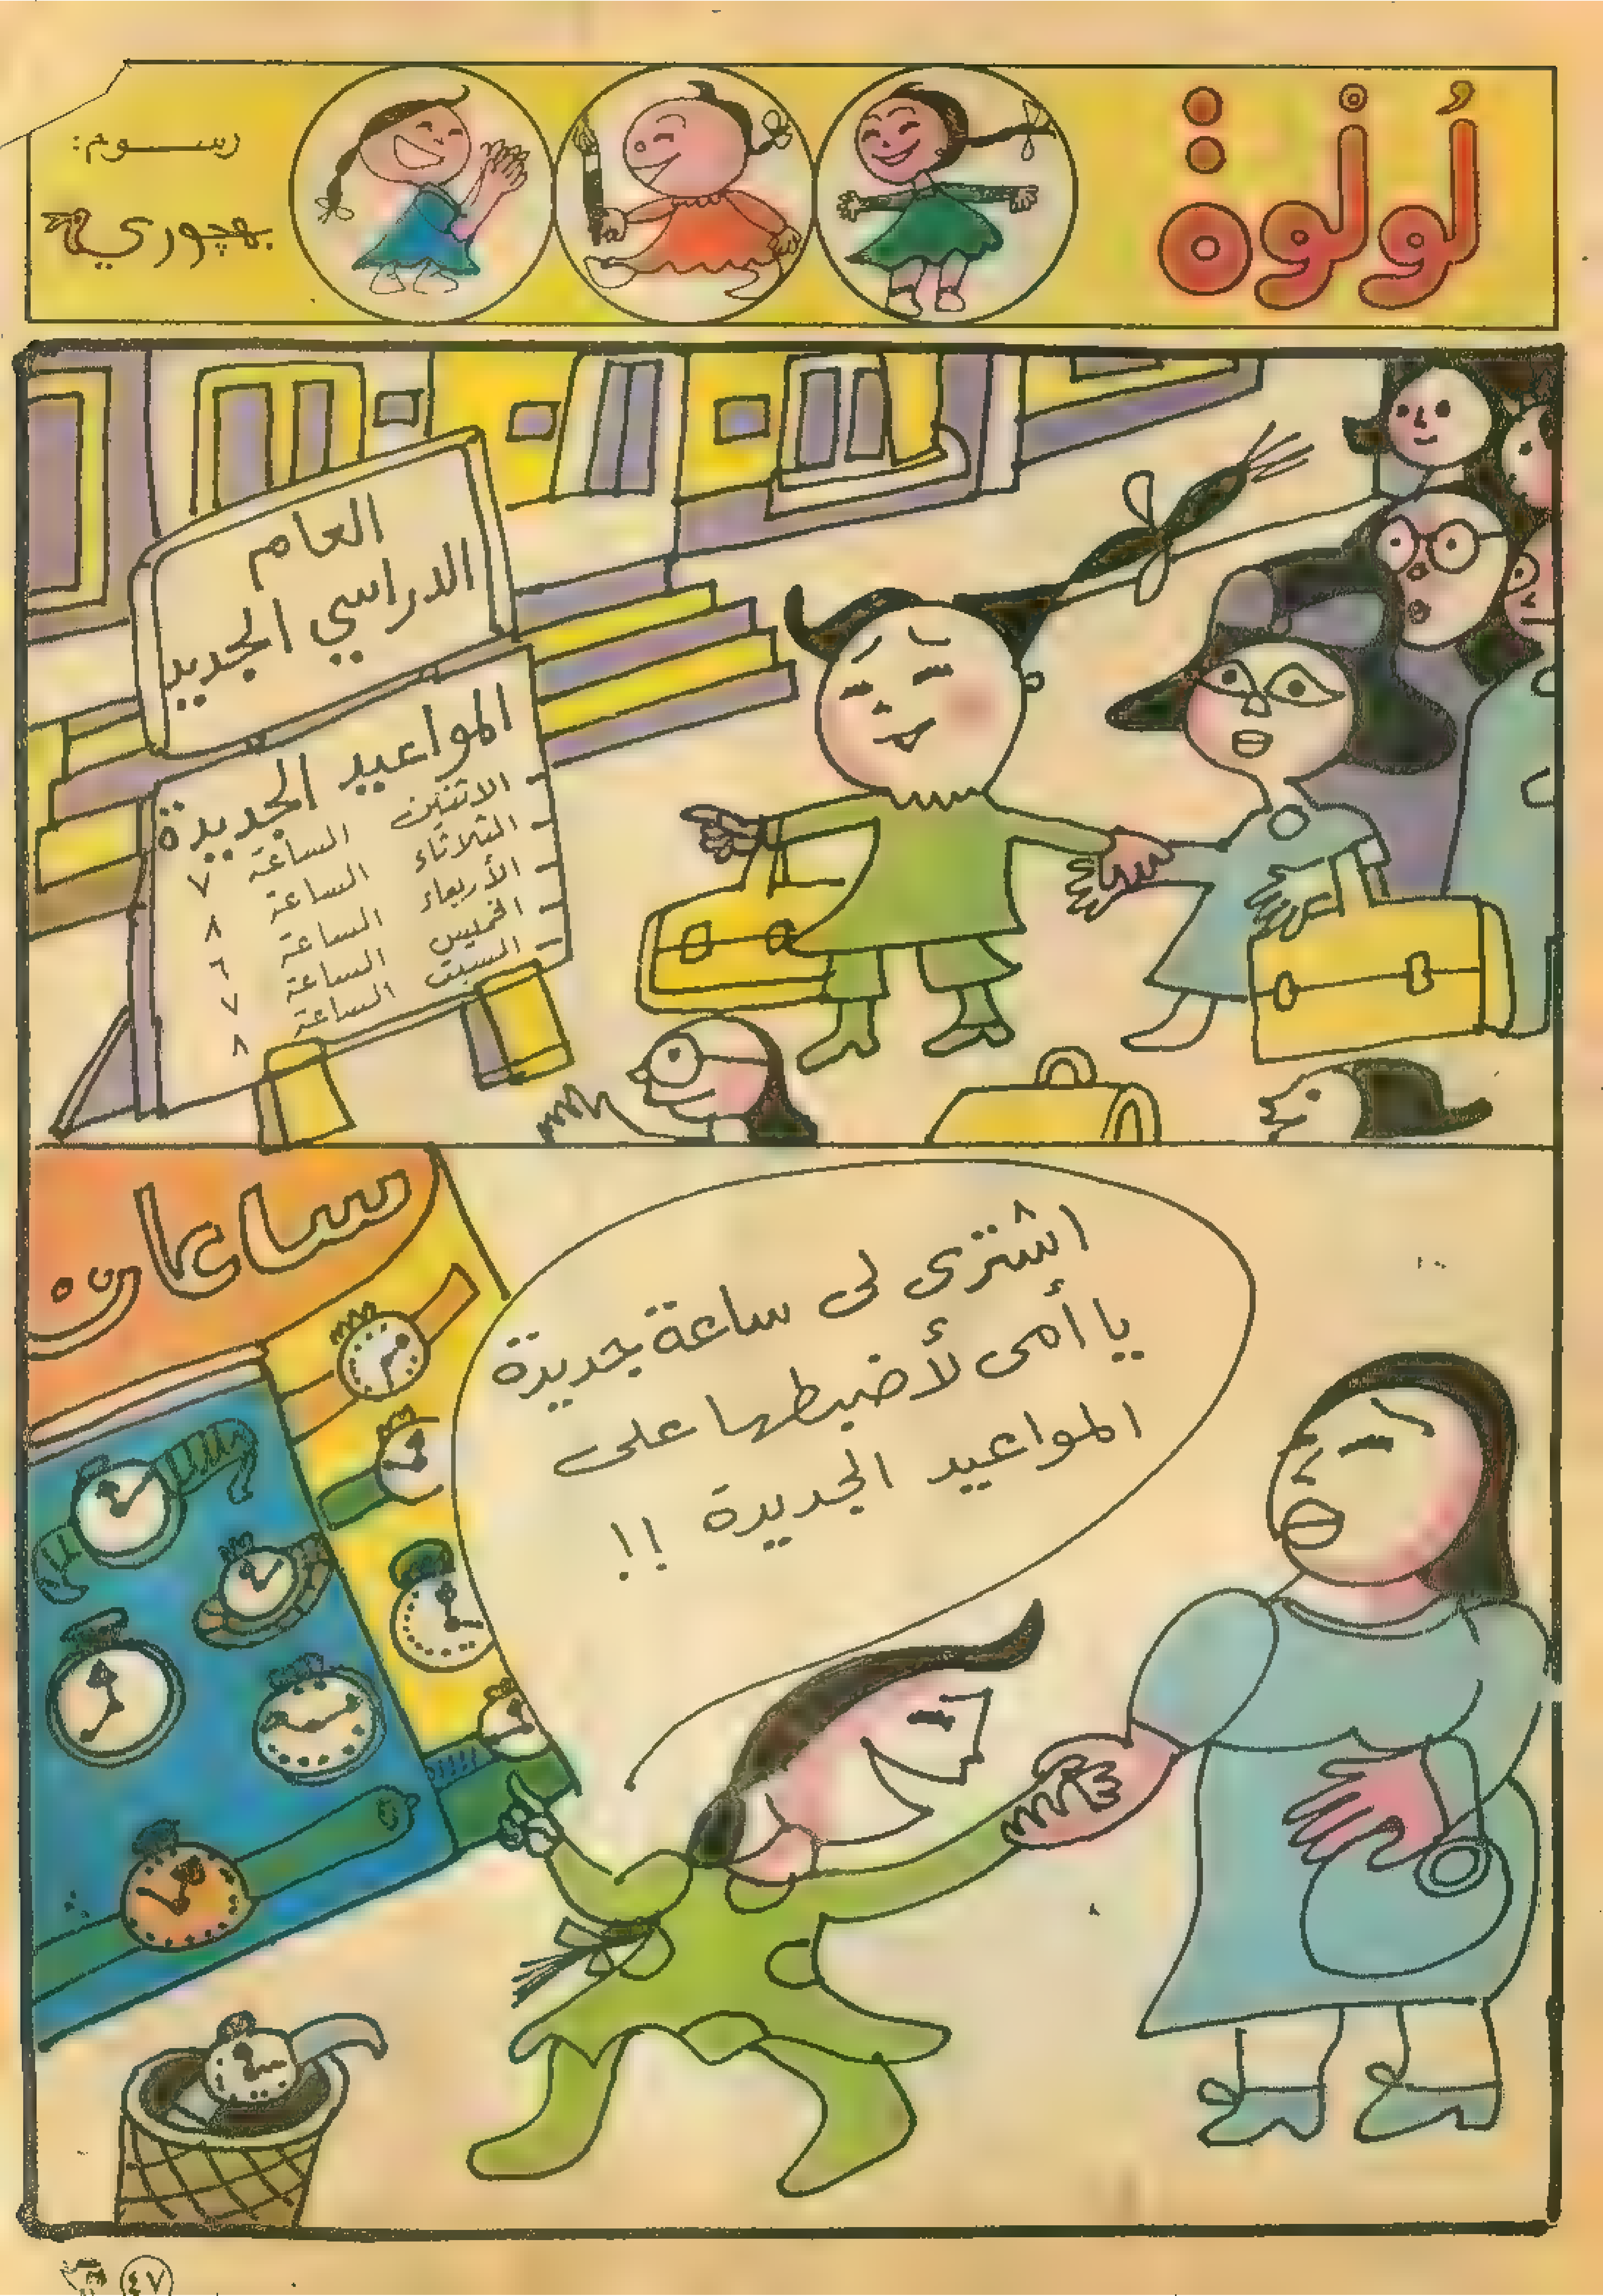 لُولْوة
رسوم:
بهجوري
العام
الدراسي الجديد
المواعيد الجديدة
الاثنين الساعة ٧
الثلاثاء الساعة ٨
الأربعاء الساعة ٦
الخميس الساعة ٧
السبت الساعة ٨
ساعات
اشترى لى ساعة جديدة
يا أمى لأضبطها على
المواعيد الجديدة !!
٤٧